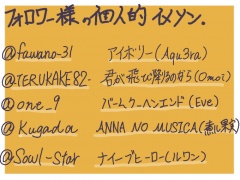 フォロワー様の個人的イメソン.
@fawano-31 アイボリー(Aqu3ra)
@TERUKAKE82- 君が飛び降りるのなら(Omoi)
@one_9 バームクーヘンエンド(Eve)
@Kugada ANNA NO MUSICA
@Soul-Star ナイーブヒーロー(ルワン)